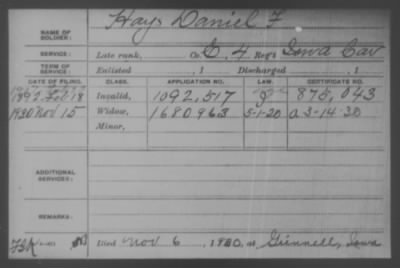 NAME OF SOLDIER: Hays Daniel F.
SERVICE: Late rank, Co. G, 4 Reg't Iowa Cav
TERM OF SERVICE: Enlisted , 1 Discharged , 1
DATE OF FILING. CLASS. APPLICATION NO. LAW. CERTIFICATE NO.
1892 Feb 18 Invalid, 1092,517 875,043
1930 Nov 15 Widow, 1680963 5-1-20 a 3-14-30
Minor,
ADDITIONAL SERVICES:
REMARKS:
Died Nov 6, 1930, at Grinnell, Iowa